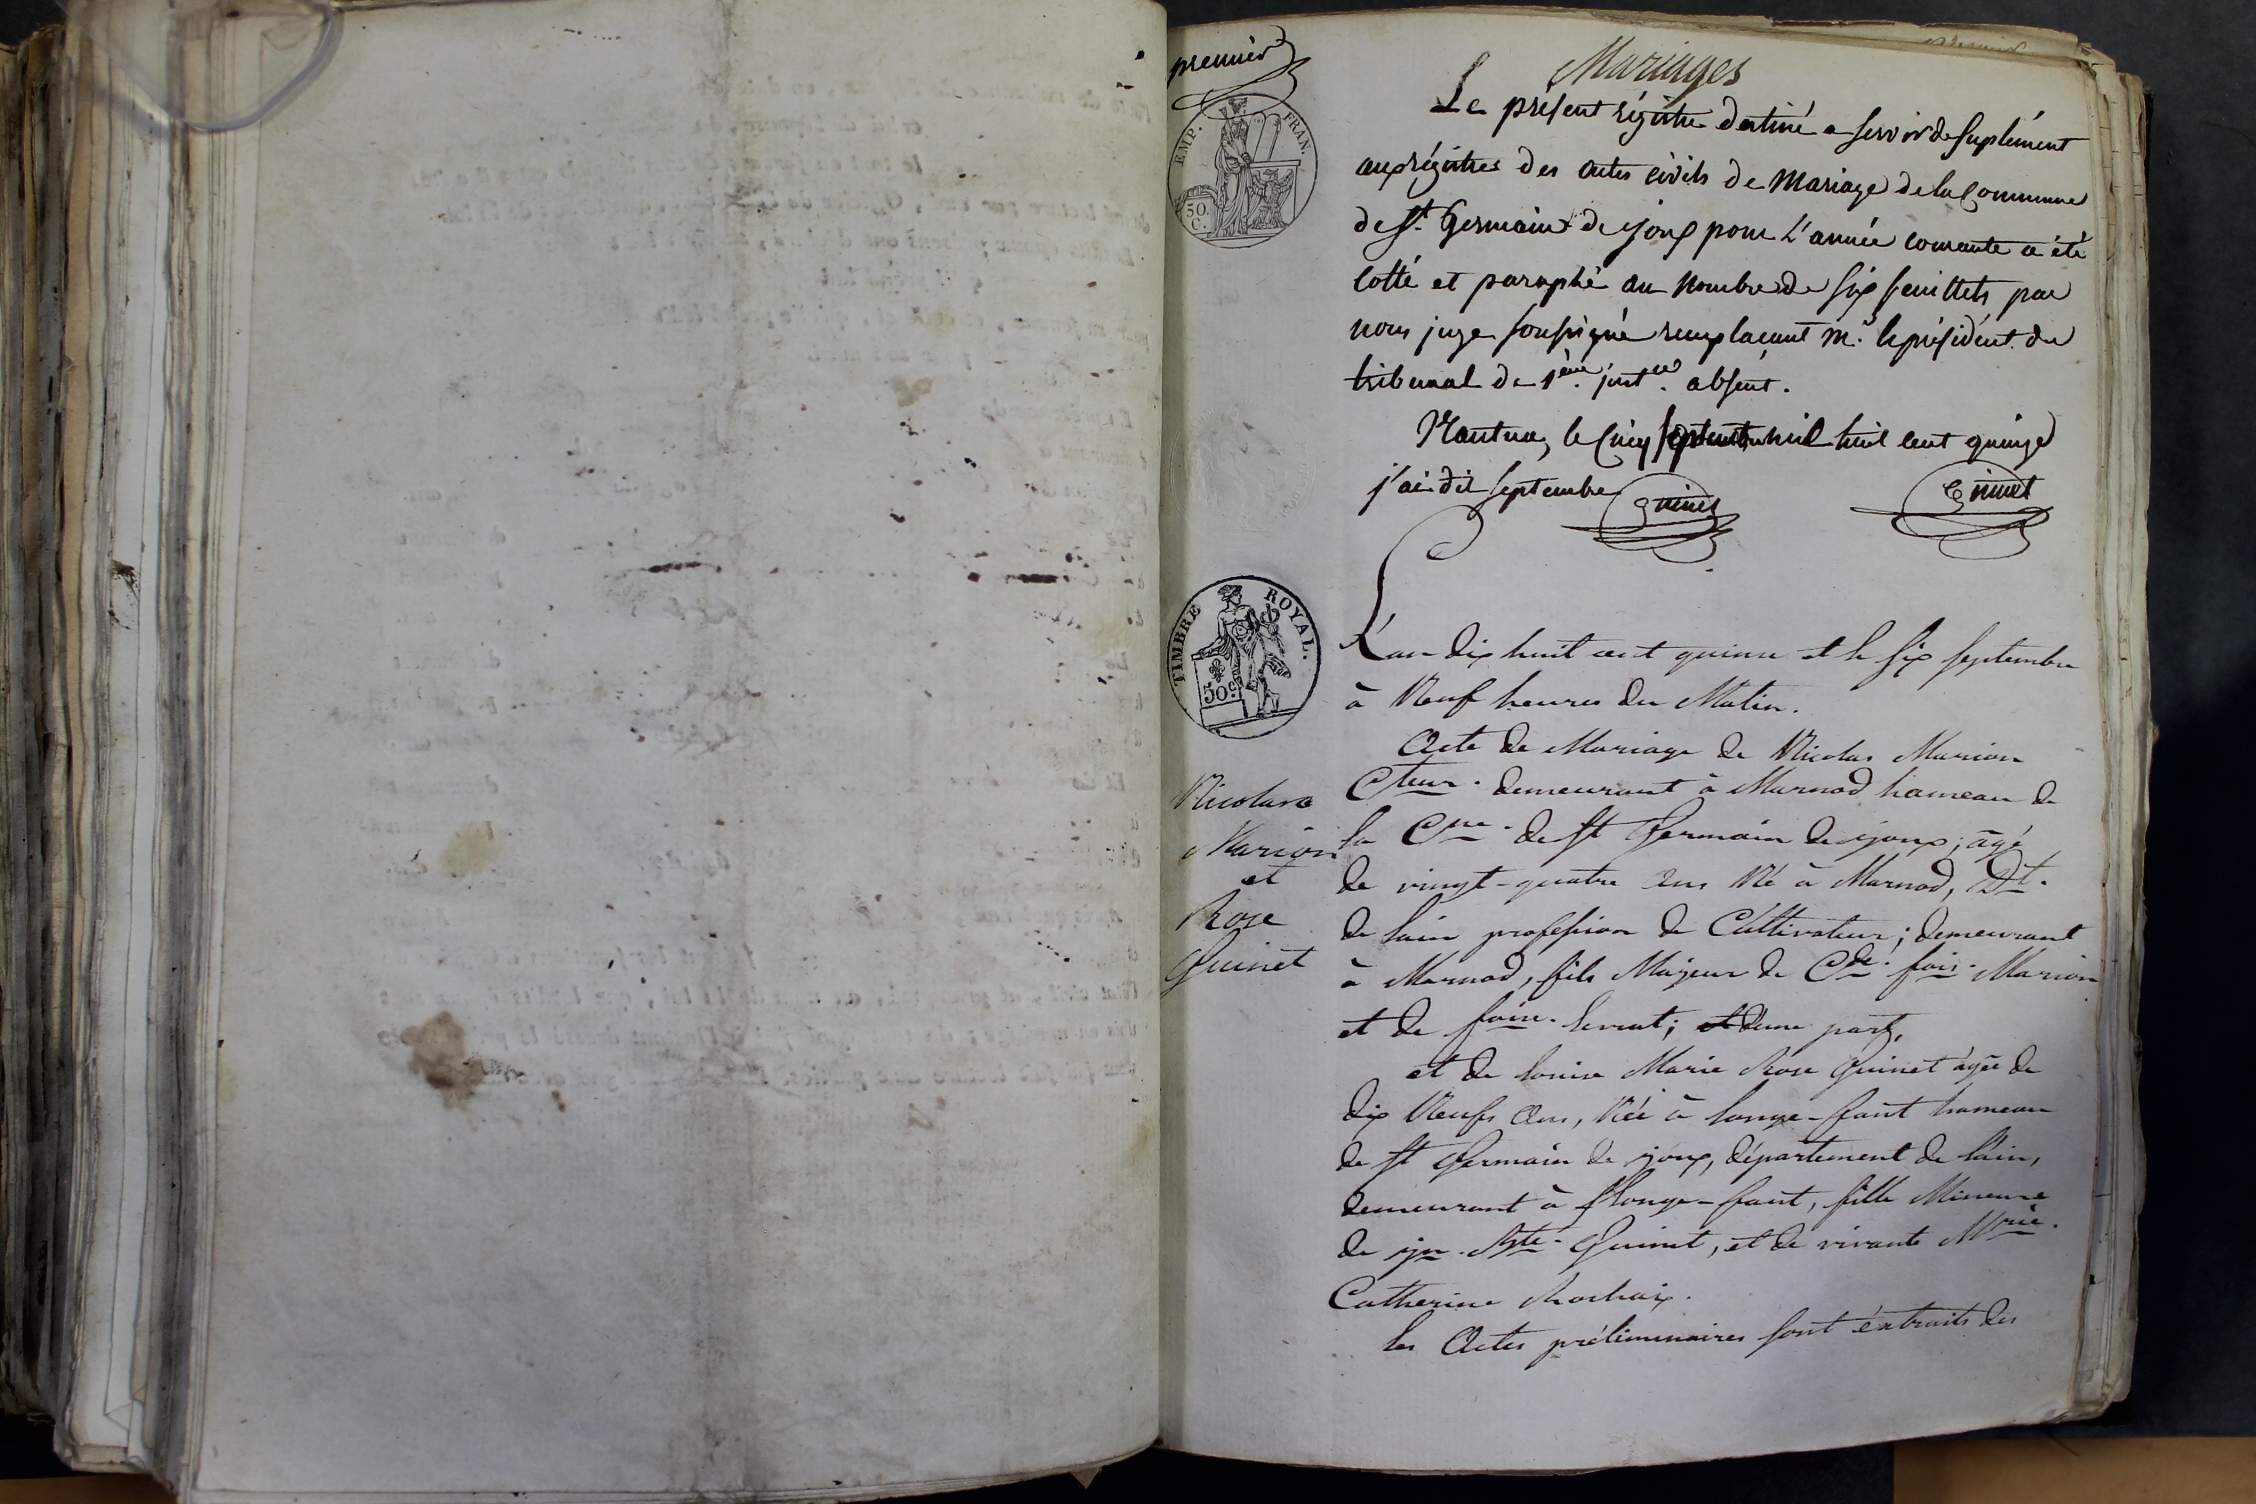 premier
EMP. FRAN.
50.
C.
Mariages
Le présent régistre destiné a servir de suplément
aux régistres des actes civils de Mariage de la Commune
de St. Germain de joux pour L'année courante a été
cotté et paraphé au nombre de six feuillets par
nous juge soussigné remplacant Mr. le président du
tribunal de 1ere. instce. absent.
Nantua, le Cinq septembre mil huit cent quinze
j'ai dit septembre Guinet Guinet
TIMBRE ROYAL.
50c.
L'an dix huit cent quinze et le six septembre
à Neuf heures du Matin.
Acte de Mariage de Nicolas Marion
Cteur. demeurant à Marnod hameau de
la Cne. de St Germain de joux; âgé
de vingt-quatre ans Né à Marnod, Dt.
de lain profession de Cultivateur; demeurant
à Marnod, fils Majeur de Cde. fois. Marion
et de foise. Levrat; et d'une part,
et de Louise Marie Rose Guinet âgée de
dix Neufs ans, Née à Longe-faut hameau
de St Germain de joux, département de lain,
demeurant à Longe-faut, fille Mineure
de Guinet, et de vivante Mrie.
Catherine Rochaix.
les Actes préliminaires sont éxtraits des
Nicolas
Marion
et
Rose
Guinet